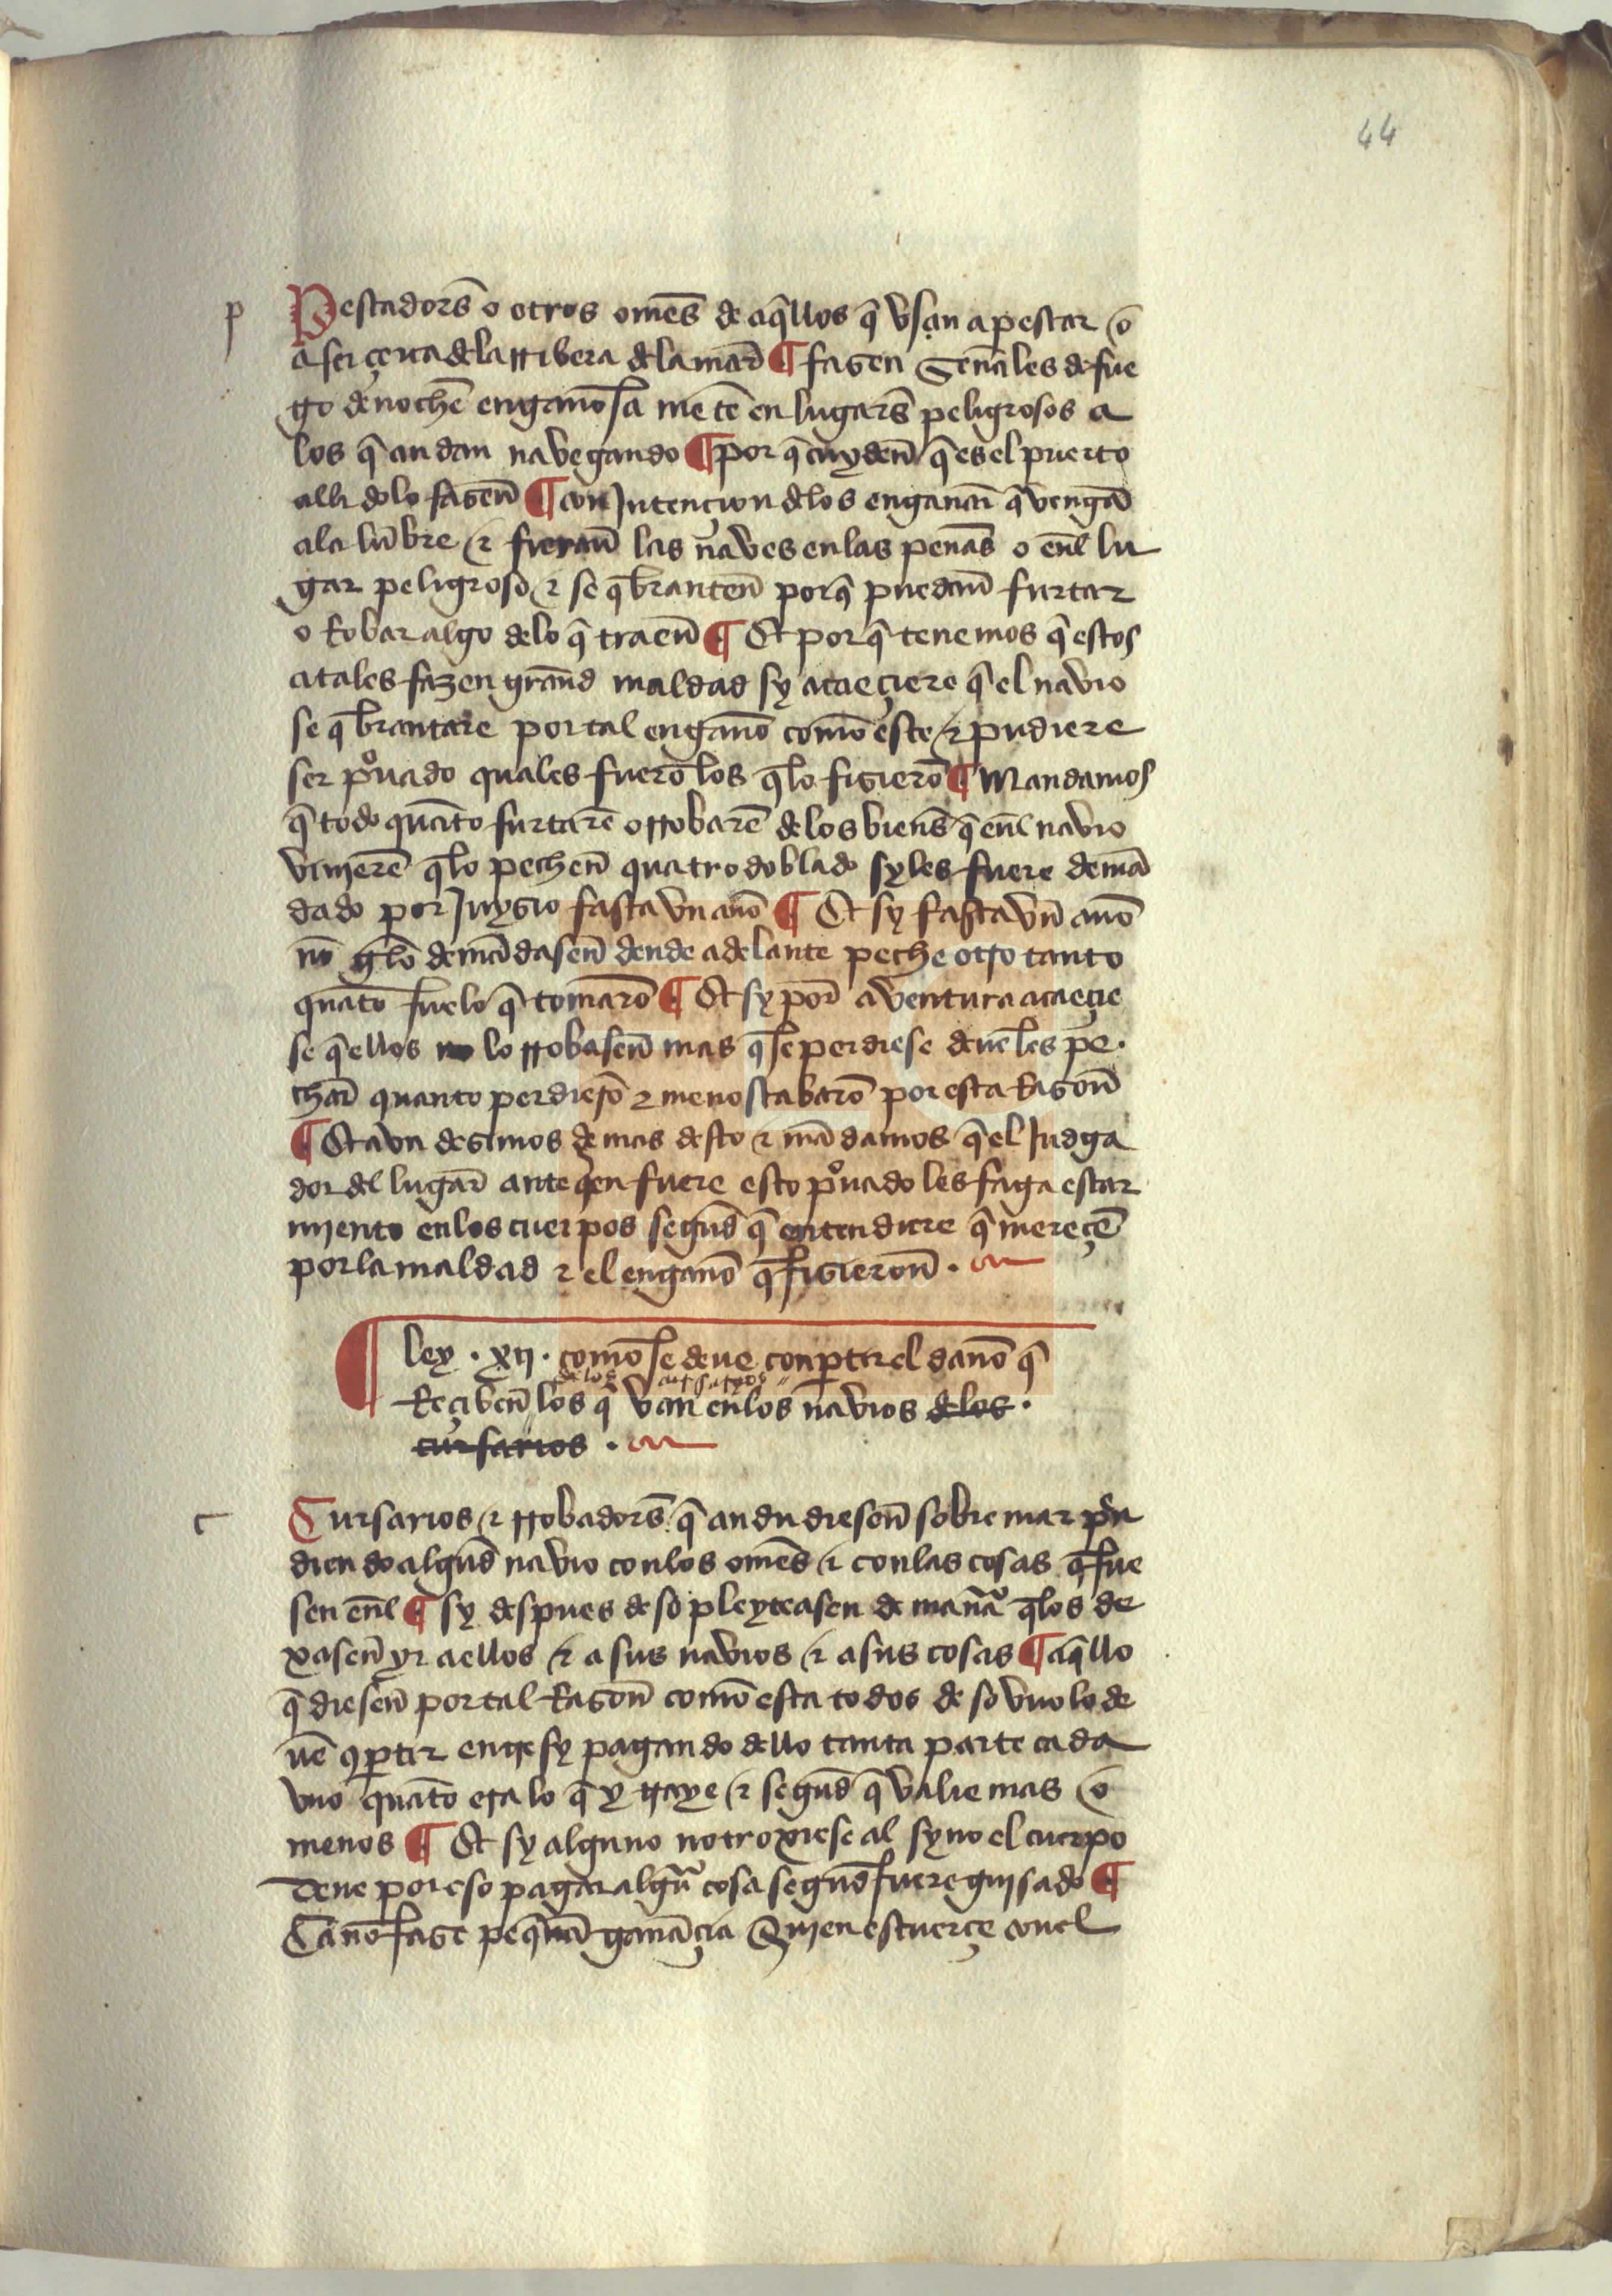 44
p
Pescadors̄ o otros om̄es de aq̄llos q̄ vsan a pescar o
a ser çerca dela rribera dela mar ¶ fasen señales de fue
go de noche engañosa mēte en lugars̄ peligrosos a
los q̄ andan navegando ¶ por q̄ cuyden̄ q̄ es el puerto
alli do lo fasen̄ ¶ con Jntençion delos engañar q̄ vengā
ala lūbre ⁊ fieran̄ las naves en las peñas o en̄l lu
gar peligroso ⁊ se q̄branten̄ porq̄ puedan̄ furtar
o Robar algo delo q̄ traen̄ ¶ Et por q̄ tenemos q̄ estos
atales fazen grand̄ maldad sy acaeçiere q̄ el navio
se q̄brantare por tal engaño como este ⁊ pudiere
ser pͦuado quales fuerō los q̄ lo fisierō ¶ Mandamos
q̄ todo quāto furtarē o rrobarē delos biens̄ q̄ en̄l navio
vinierē q̄ lo pechen̄ quatro doblado sy les fuere demā
dado por Juysio fasta vn año ¶ Et sy fasta vn̄ año
no gelo demādasen̄ dende adelante peche otro tanto
quāto fue lo q̄ tomarō ¶ Et sy por aventura acaeçie
se q̄ ellos no lo rrobasen̄ mas q̄ se perdiese deuē les pe
char quanto perdierō ⁊ menoscabarō por esta Rason̄
¶ Et avn desimos demas desto ⁊ mādamos q̄ el Judga
dor del lugar ante qͥen fuere esto pͦuado les faga escar
miento en los cuerpos segund̄ q̄ entendiere q̄ mereçē
por la maldad ⁊ el engaño q̄ fisieron̄ .
ley . xij . como se deue conp̱tir el daño q̄
delos cursarios
Reçiben̄ los q̄ van en los navios delos .
cursarios .
c
Cursarios ⁊ rrobadors̄ q̄ andudiesen̄ sobre mar pͬn
diendo algund̄ navio con los om̄es ⁊ con las cosas q̄ fue
sen en̄l ¶ sy despues de so pleyteasen de manͣa q̄ los de
xasen̄ yr a ellos ⁊ a sus navios ⁊ a sus cosas ¶ aq̄llo
q̄ diesen̄ por tal Rason̄ como esta todos de so vno lo de
uē ꝯp̱tir entre sy pagando dello tanta parte cada
vno quāto era lo q̄ y traye ⁊ segund̄ q̄ valie mas o
menos ¶ Et sy alguno no troxiese al syno el cuerpo
deue por eso pagar algūͣ cosa segund̄ fuere guisado ¶
Ca no fase peq̄ña ganāçia Quien estuerçe con el